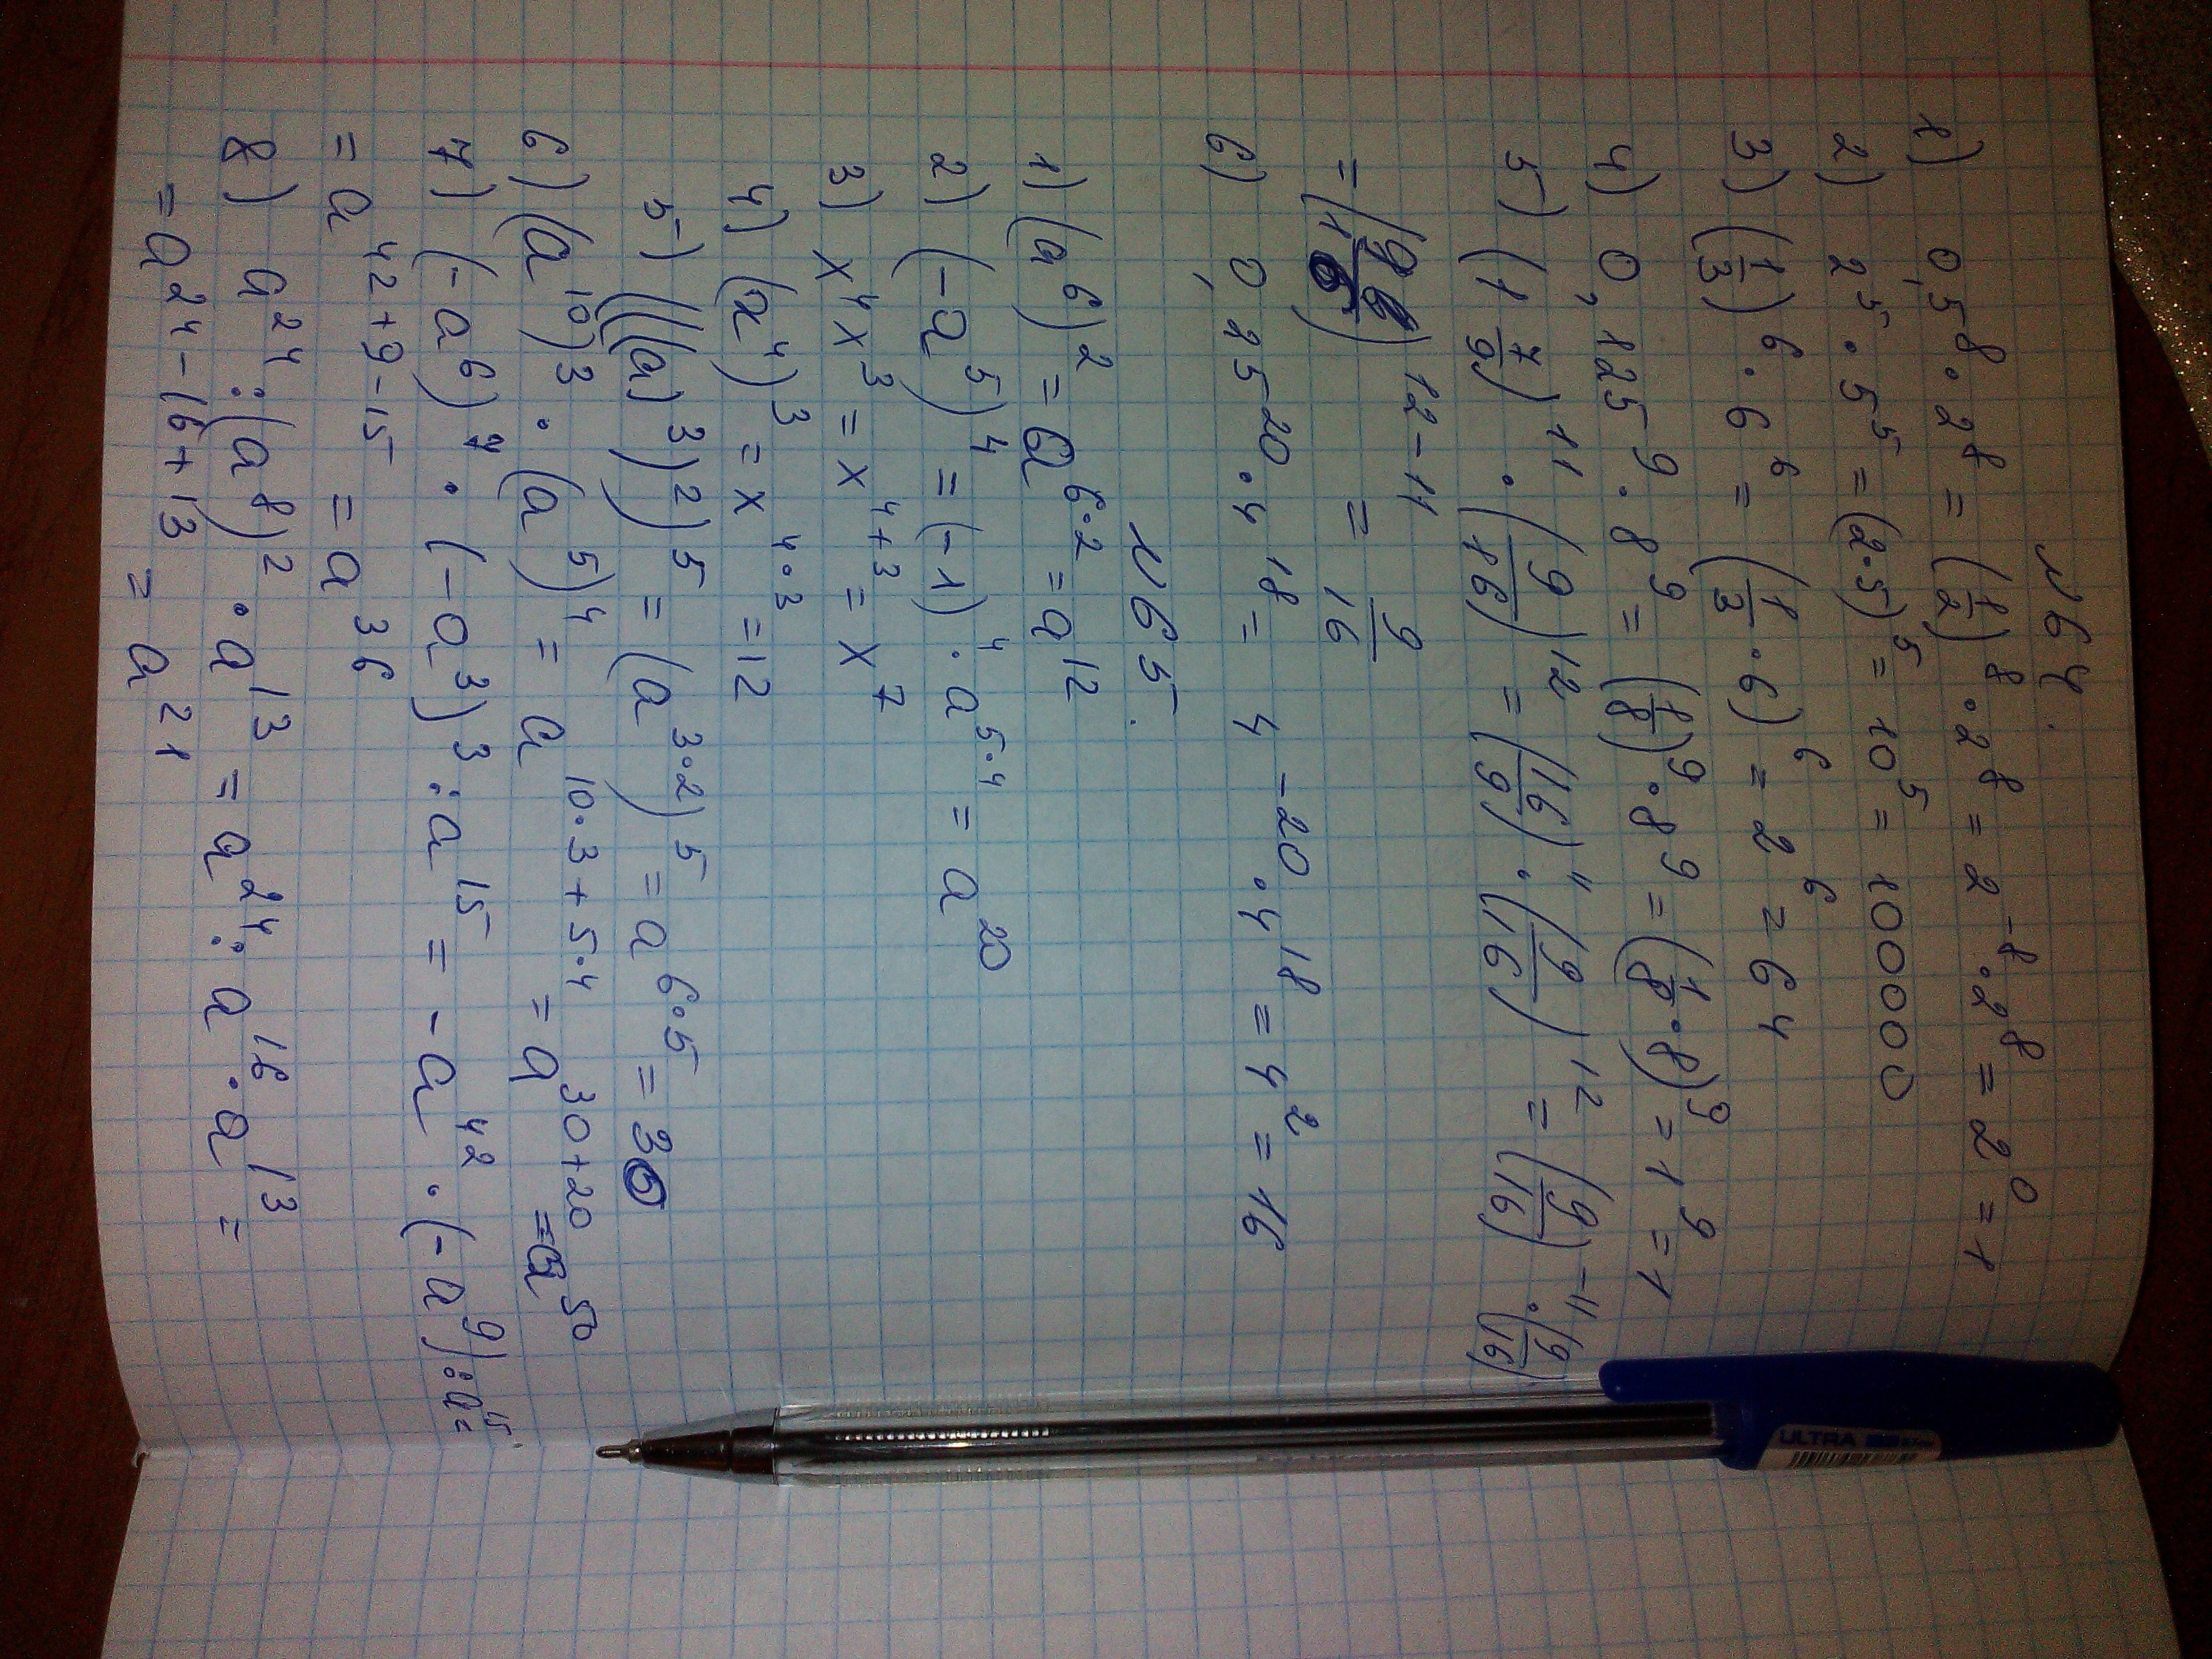 №64.
1) 0,5⁸·2⁸ = (1/2)⁸·2⁸ = 2⁻⁸·2⁸ = 2⁰ = 1
2) 2⁵·5⁵ = (2·5)⁵ = 10⁵ = 100000
3) (1/3)⁶·6⁶ = (1/3·6)⁶ = 2⁶ = 64
4) 0,125⁹·8⁹ = (1/8)⁹·8⁹ = (1/8·8)⁹ = 1⁹ = 1
5) (1 7/9)¹¹·(9/16)¹² = (16/9)¹¹·(9/16)¹² = (9/16)⁻¹¹·(9/16)
= (9/16)¹²⁻¹¹ = 9/16
6) 0,25²⁰·4¹⁸ = 4⁻²⁰·4¹⁸ = 4² = 16
№65.
1) (a⁶)² = a⁶·² = a¹²
2) (-a⁵)⁴ = (-1)⁴·a⁵·⁴ = a²⁰
3) x⁴x³ = x⁴⁺³ = x⁷
4) (a⁴)³ = x⁴·³ = 12
5) (((a)³)²)⁵ = (a³·²)⁵ = a⁶·⁵ = 30
6) (a¹⁰)³·(a⁵)⁴ = a¹⁰·³⁺⁵·⁴ = a³⁰⁺²⁰ = a⁵⁰
7) (-a⁶)⁷·(-a³)³:a¹⁵ = -a⁴²·(-a⁹):a¹⁵=
= a⁴²⁺⁹⁻¹⁵ = a³⁶
8) a²⁴:(a⁸)²·a¹³ = a²⁴:a¹⁶·a¹³ =
= a²⁴⁻¹⁶⁺¹³ = a²¹
ULTRA